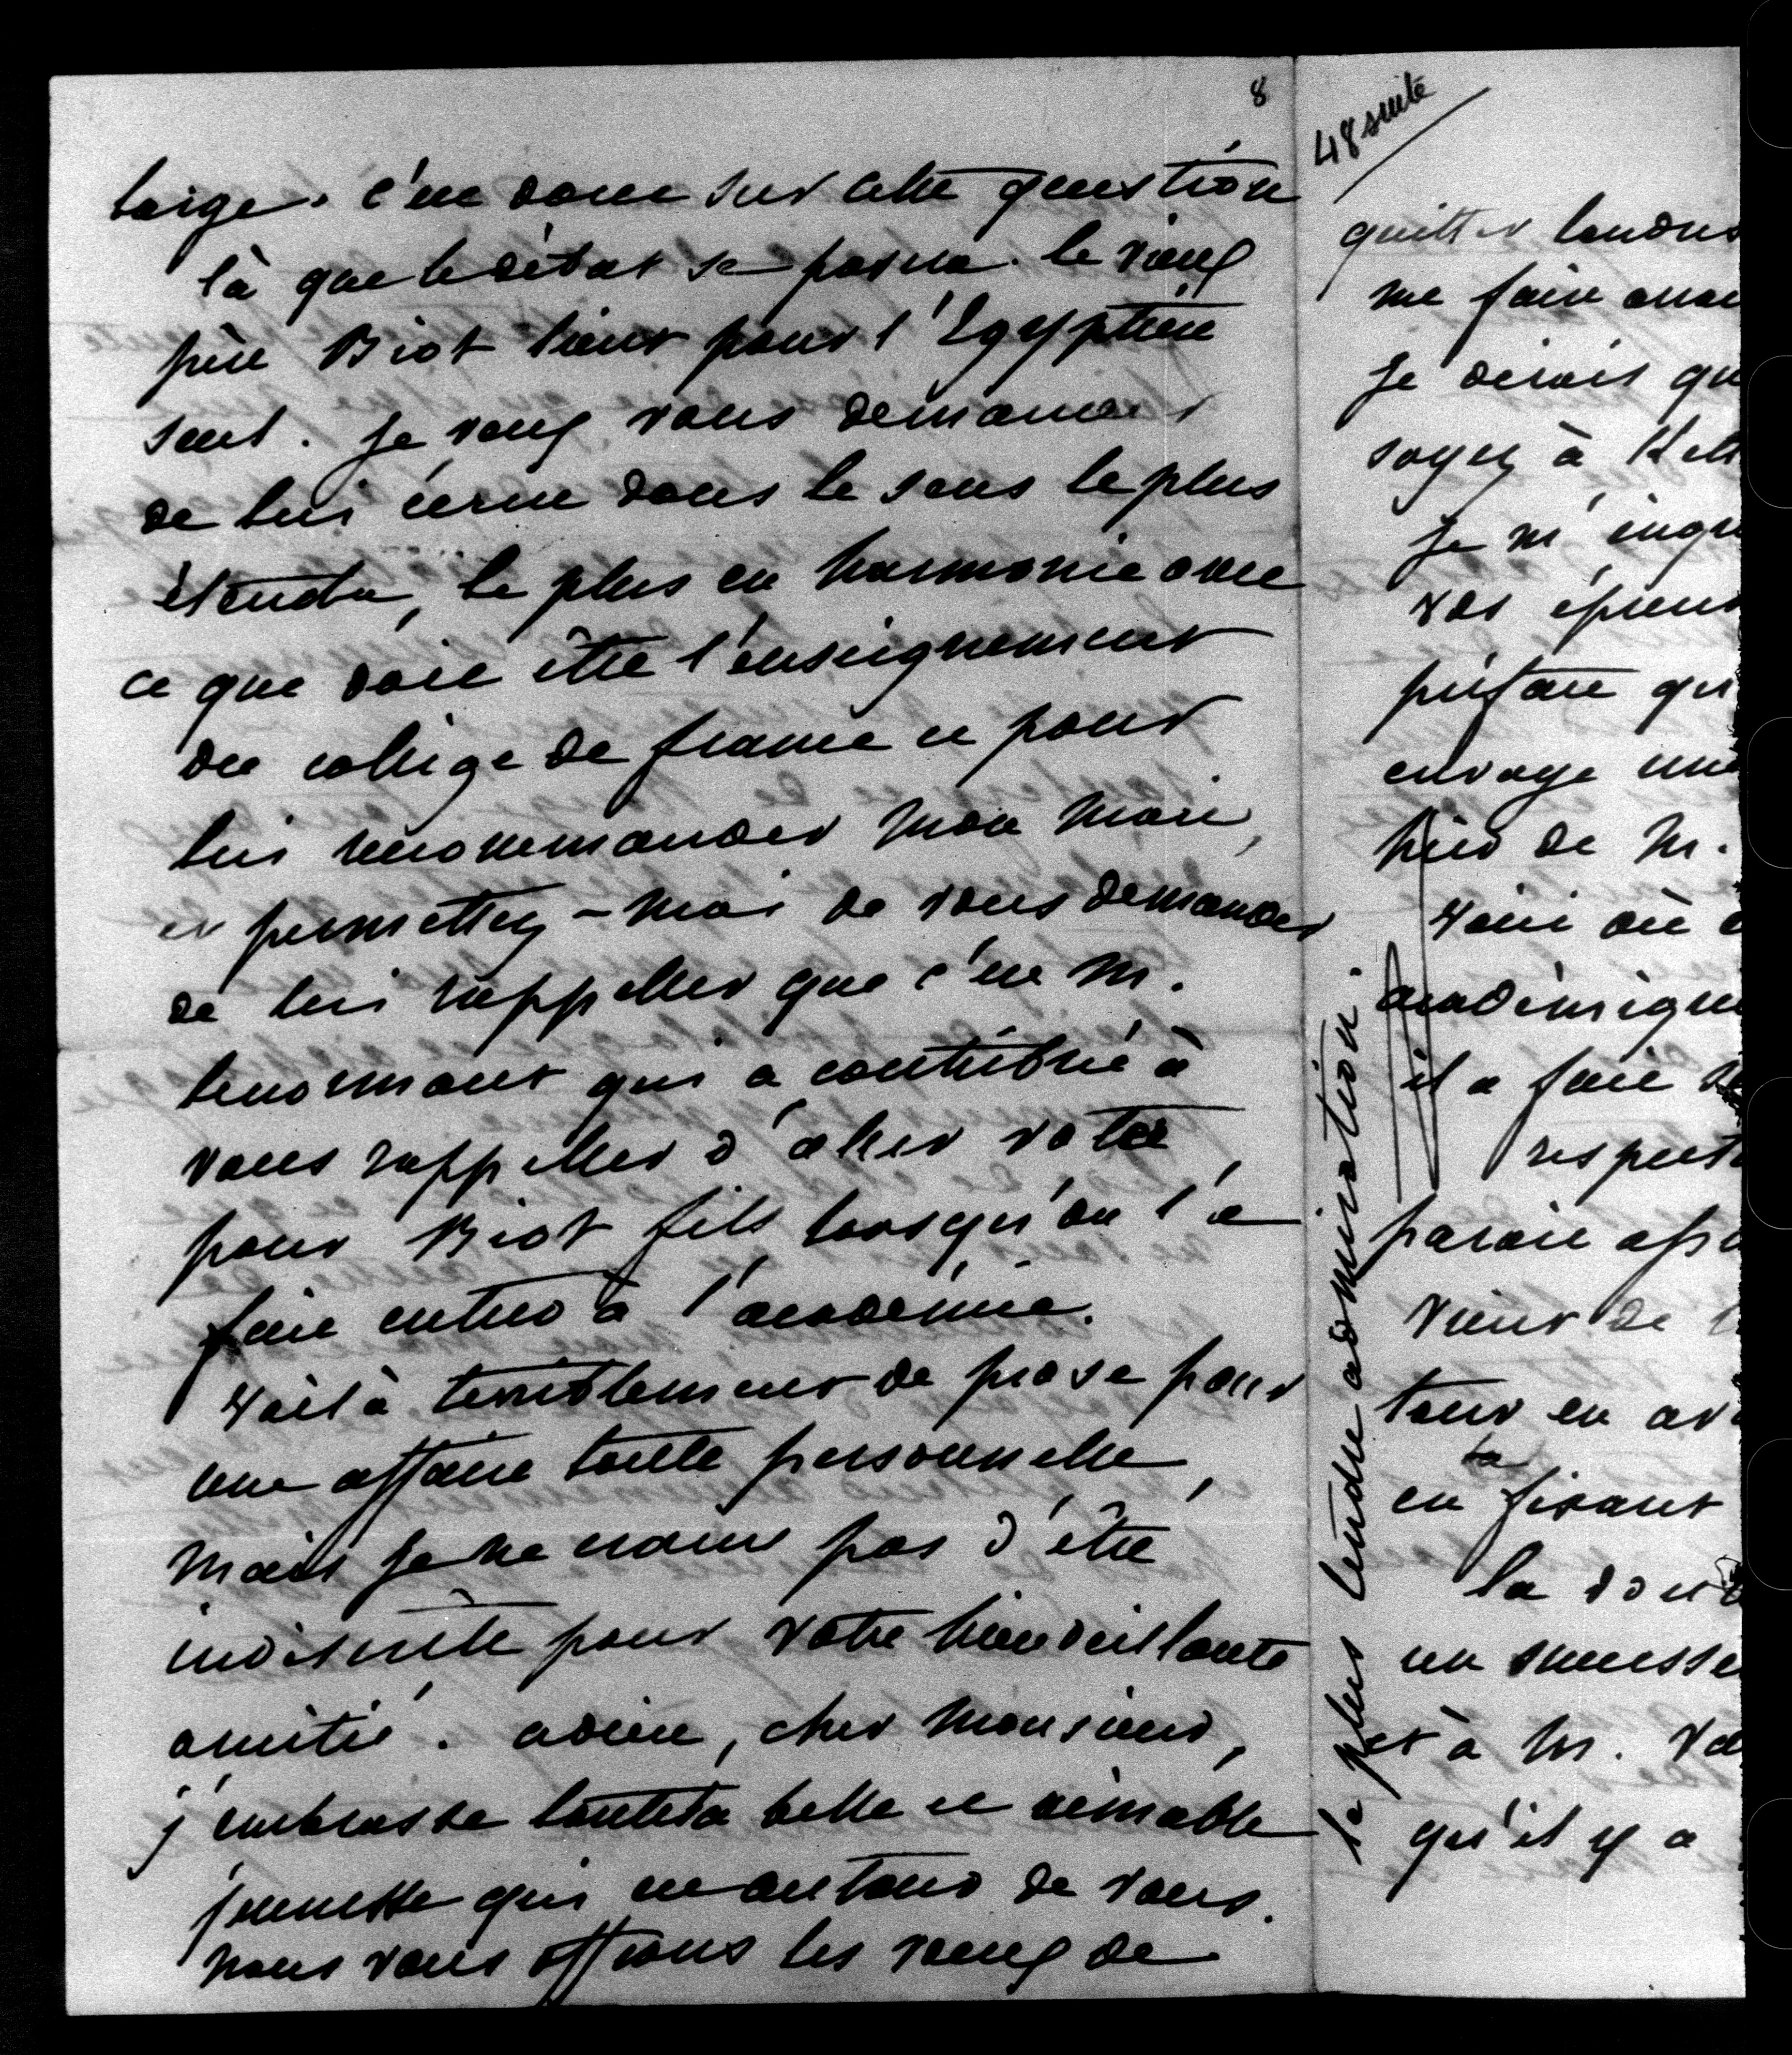 8
large. c'est donc sur cette question
là que le débat se posera. le vieux
père Biot tient pour l'Egyptien
seul. je veux vous demander
de lui écrire dans le sens le plus
étendu, le plus en harmonie avec
ce que doit être l'enseignement
du collège de france et pour
lui recommander mon mari,
et permettez-moi de vous demander
de lui rappeller que c'est M.
lenormant qui a contribué à
vous rappeller d'aller voter
pour Biot fils lorsqu'on l'a
fait entrer à l'académie.
Voilà terriblement de prose pour
une affaire toute personnelle,
mais je ne crains pas d'être
indiscrète pour votre bienveillante
amitié. adieu, cher Monsieur,
j'embrasse toute la belle et aimable
jeunesse qui est autour de vous.
nous vous offrons les vœux de
la plus tendre admiration.
48 suite
quitter londres
me faire
je dirais qu
soyez à
je m'
vos
préface qu
envoye une
hier de M.
Voici où
académique
il a fait
respect
parait
vient de
tout en
en fixant
la
un
et à M.
qu'il y a